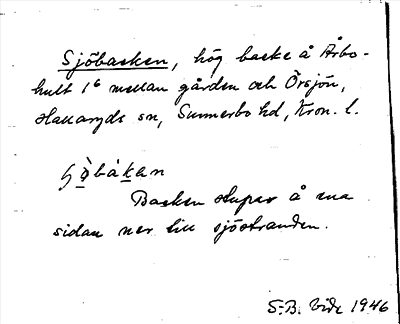 Sjöbacken, hög backe å Årbo-
hult 1⁶ mellan gården och Örsjön,
Hallaryds sn, Sunnerbo hd, Kron. l.
ʃö̀bákan
Backen stupar å ena
sidan ner till sjöstranden.
S.-B. Vide 1946